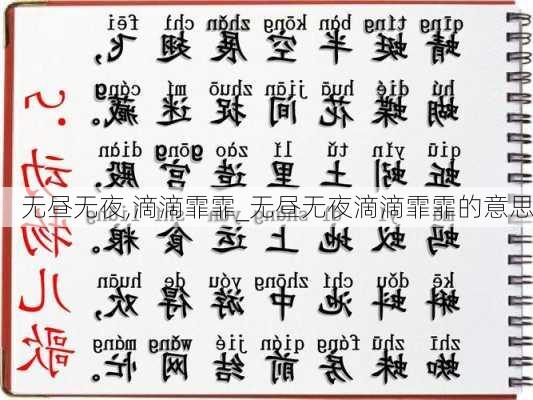 5. 动物儿歌
qīng tíng bàn kōng zhǎn chì fēi
蜻蜓半空展翅飞，
hú dié huā jiān zhuō mí cáng
蝴蝶花间捉迷藏。
qiū yǐn tǔ lǐ zào gōng diàn
蚯蚓土里造宫殿，
无昼无夜,滴滴霏霏_无昼无夜滴滴霏霏的意思
蚂蚁地上运食粮。
kē dǒu chí zhōng yóu de huān
蝌蚪池中游得欢，
zhī zhū fáng qián jié wǎng máng
蜘蛛房前结网忙。